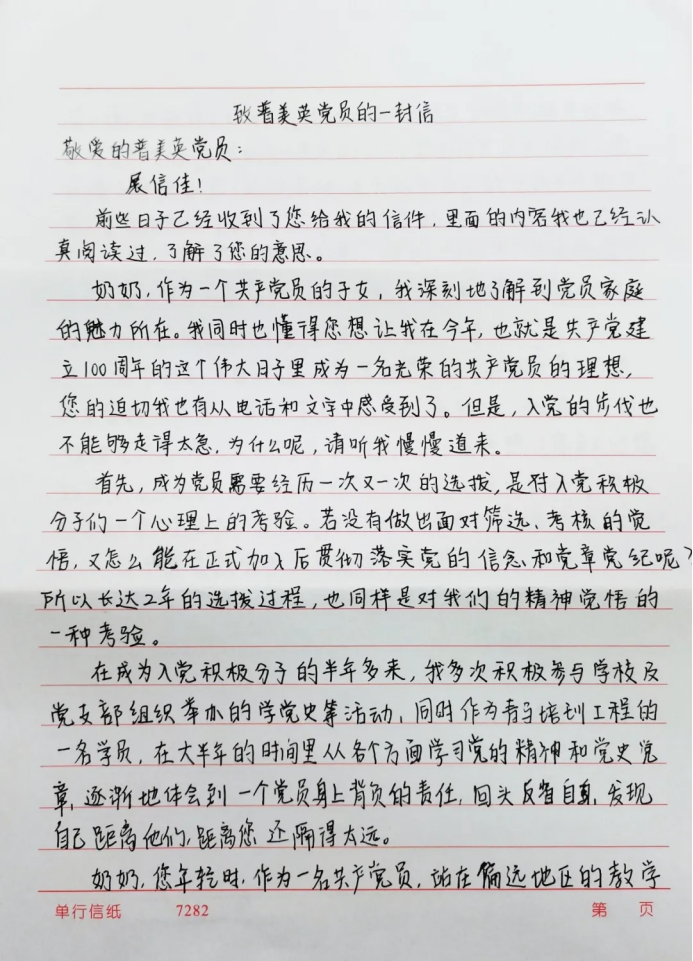 致普美英党员的一封信
敬爱的普美英党员：
展信佳！
前些日子已经收到了您给我的信件，里面的内容我也已经认
真阅读过，了解了您的意思。
奶奶，作为一个共产党员的子女，我深刻地了解到党员家庭
的魅力所在。我同时也懂得您想让我在今年，也就是共产党建
立100周年的这个伟大日子里成为一名光荣的共产党员的理想，
您的迫切我也有从电话和文字中感受到了。但是，入党的步伐也
不能够走得太急，为什么呢，请听我慢慢道来。
首先，成为党员需要经历一次又一次的选拔，是对入党积极
分子们一个心理上的考验。若没有做出面对筛选、考核的觉
悟，又怎么能在正式加入后贯彻落实党的信念和党章党纪呢？
所以长达2年的选拔过程，也同样是对我们的精神觉悟的
一种考验。
在成为入党积极分子的半年多来，我多次积极参与学校及
党支部组织举办的学党史等活动，同时作为青马培训工程的
一名学员，在大半年的时间里从各个方面学习党的精神和党史党
章，逐渐地体会到一个党员身上背负的责任，回头反省自身，发现
自己距离他们，距离您还隔得太远。
奶奶，您年轻时，作为一名共产党员，站在偏远地区的教学
单行信纸 7282 第 页